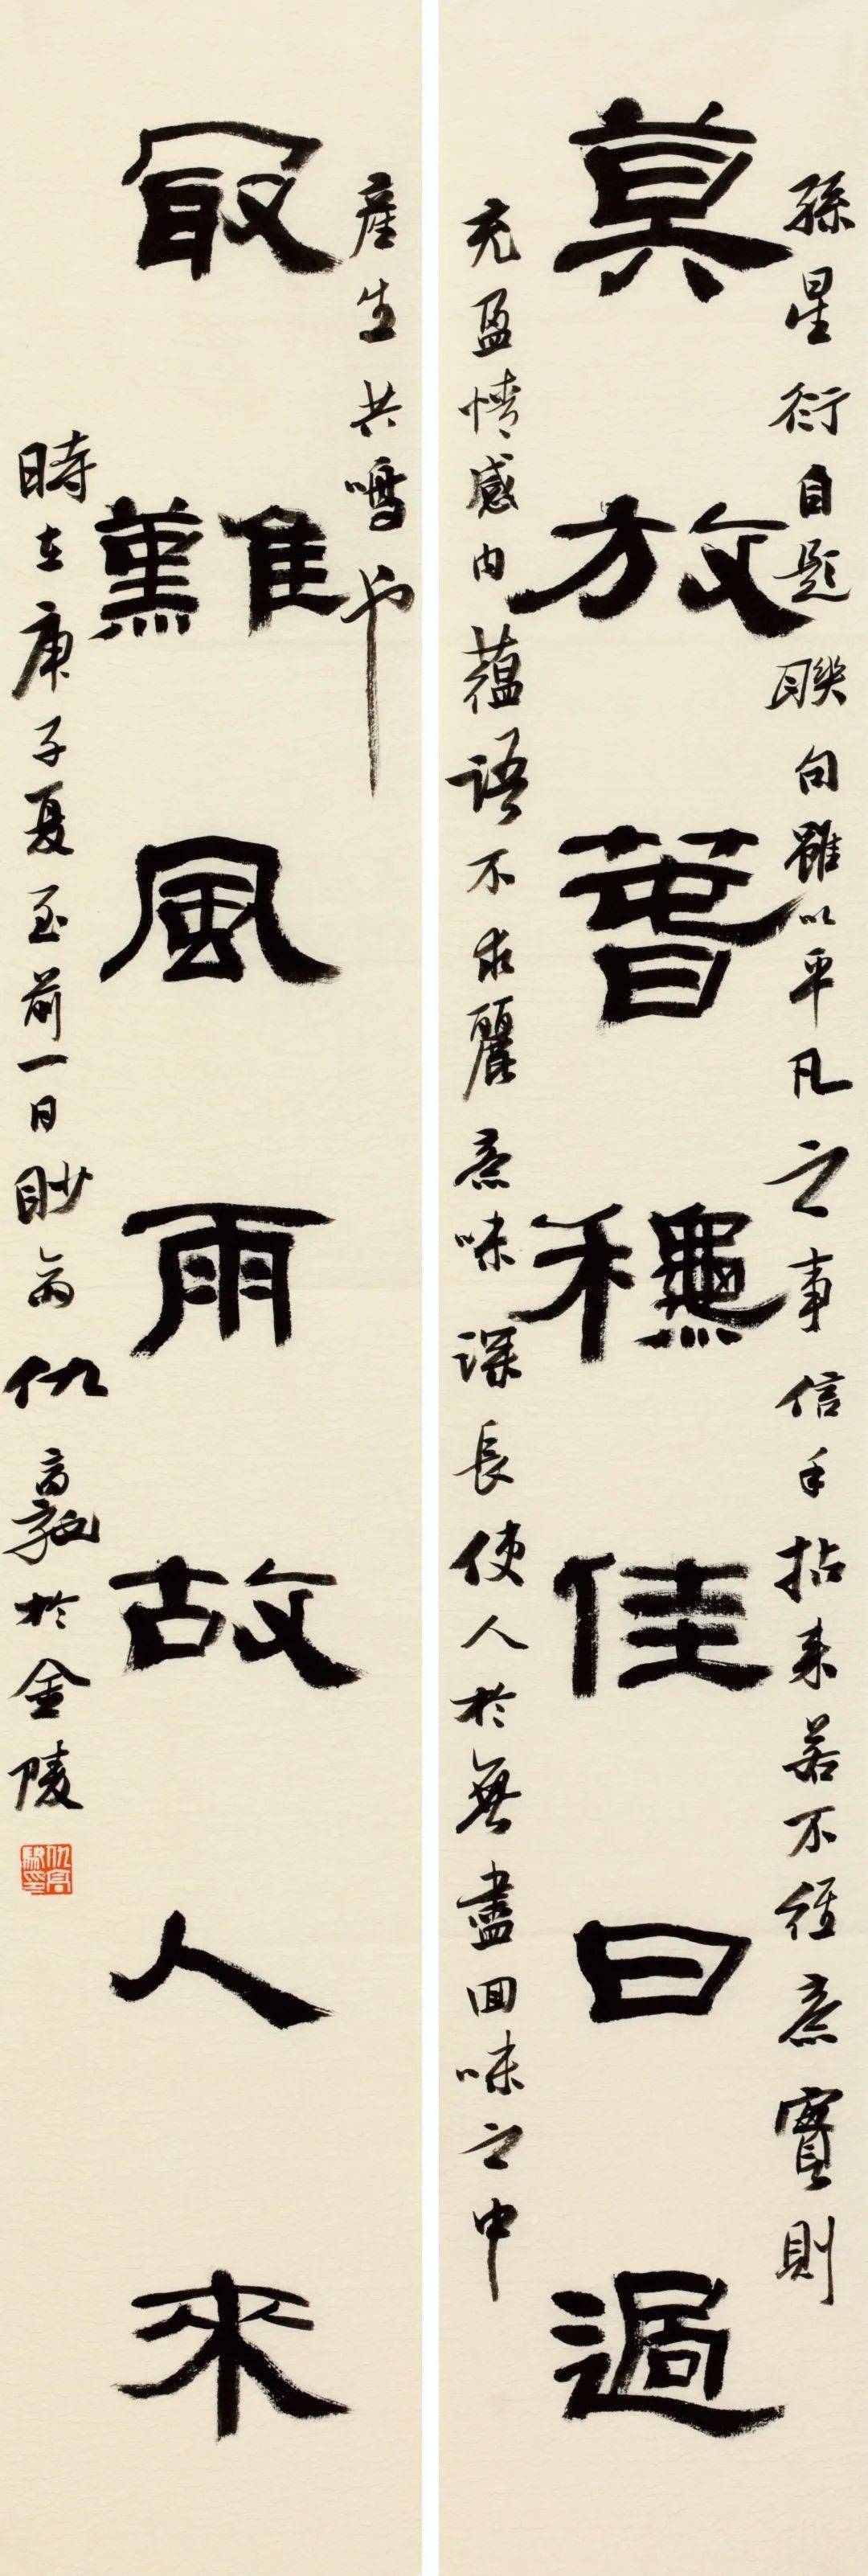 莫放春穐佳日過
孫星衍自題聯句雖以平凡之事信手拈来若不經意實則
充盈情感内蕴語不求麗意味深長使人於無盡回味之中
冣難風雨故人來
産生共鳴也
時在庚子夏至前一日眇翁仇高馴於金陵
仇高馴印